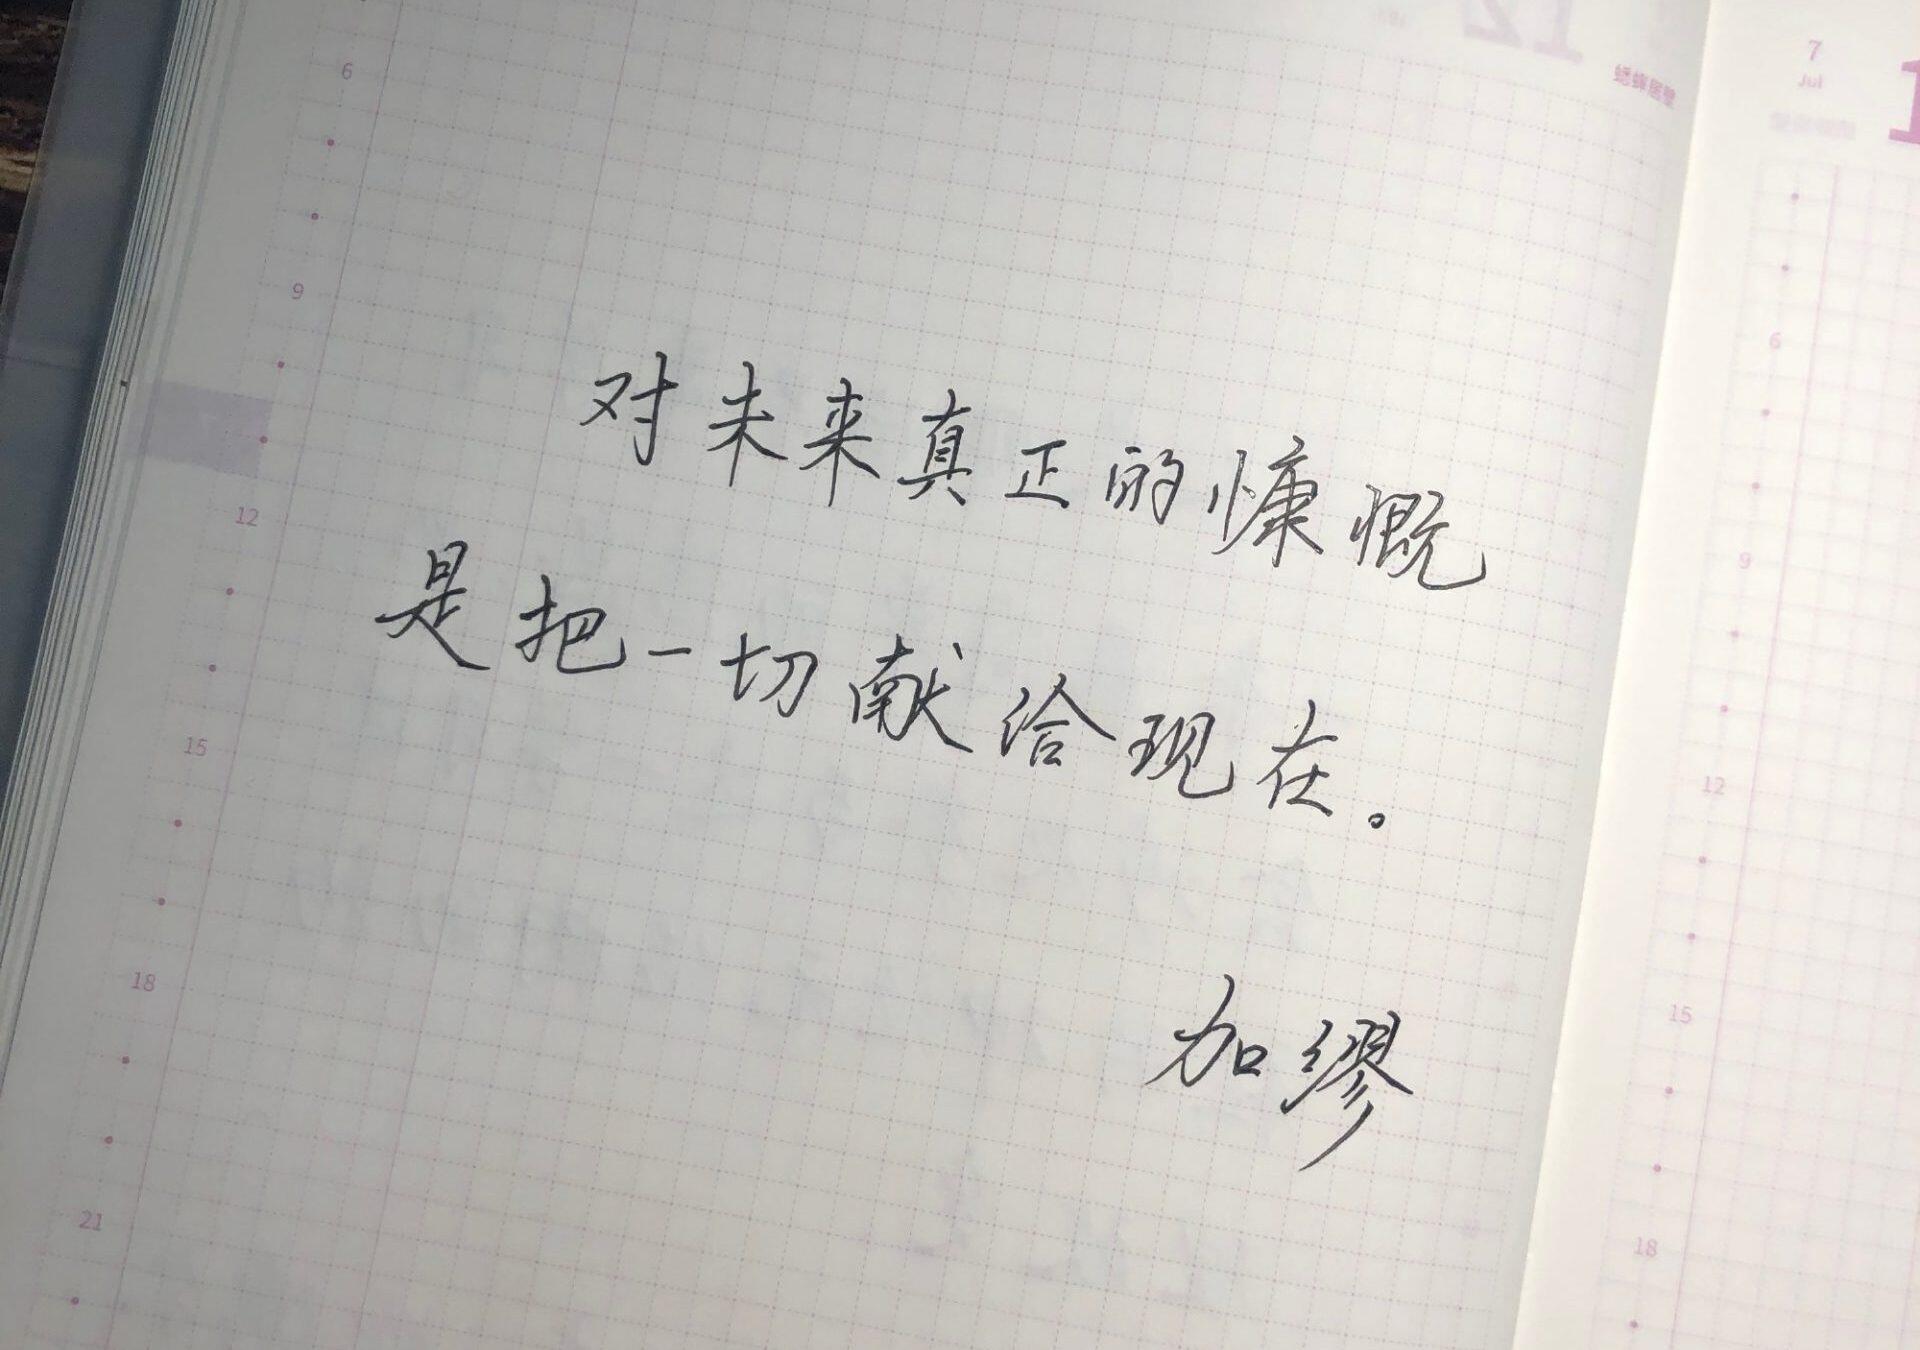 对未来真正的慷慨
是把一切献给现在。
加缪
6
9
12
15
18
21
7
Jul
1
6
9
12
15
18